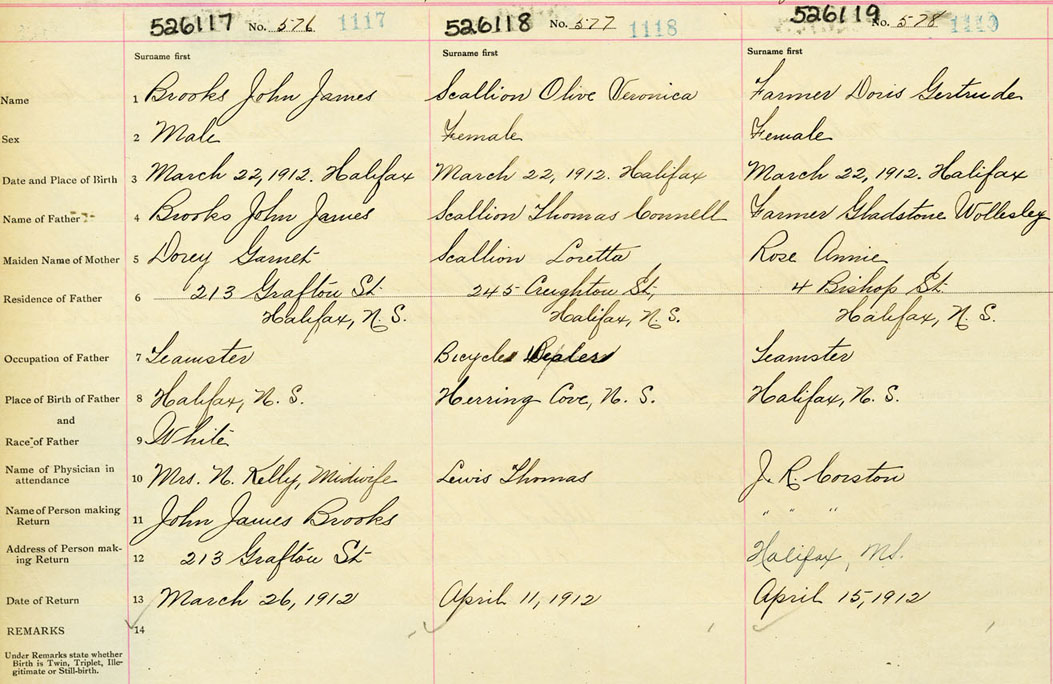 526117 No. 576 1117 526118 No. 577 1118 526119 No. 578 1119
Surname first Surname first Surname first
Name 1 Brooks John James Scallion Olive Veronica Farmer Doris Gertrude
Sex 2 Male Female Female
Date and Place of Birth 3 March 22, 1912. Halifax March 22, 1912. Halifax March 22, 1912. Halifax
Name of Father 4 Brooks John James Scallion Thomas Connell Farmer Gladstone Wollesley
Maiden Name of Mother 5 Dorey Garnet Scallion Loretta Rose Annie
Residence of Father 6 213 Grafton St. 245 Creighton St, 4 Bishop St.
Halifax, N. S. Halifax, N. S. Halifax, N. S.
Occupation of Father 7 Teamster Bicycle Teamster
Place of Birth of Father 8 Halifax, N. S. Herring Cove, N. S. Halifax, N. S.
and
Race of Father 9 White
Name of Physician in
attendance 10 Mrs. N. Kelly, Midwife Lewis Thomas J. R. Corston
Name of Person making
Return 11 John James Brooks " " "
Address of Person mak-
ing Return 12 213 Grafton St Halifax,
Date of Return 13 March 26, 1912 April 11, 1912 April 15, 1912
REMARKS 14
Under Remarks state whether
Birth is Twin, Triplet, Ille-
gitimate or Still-birth.